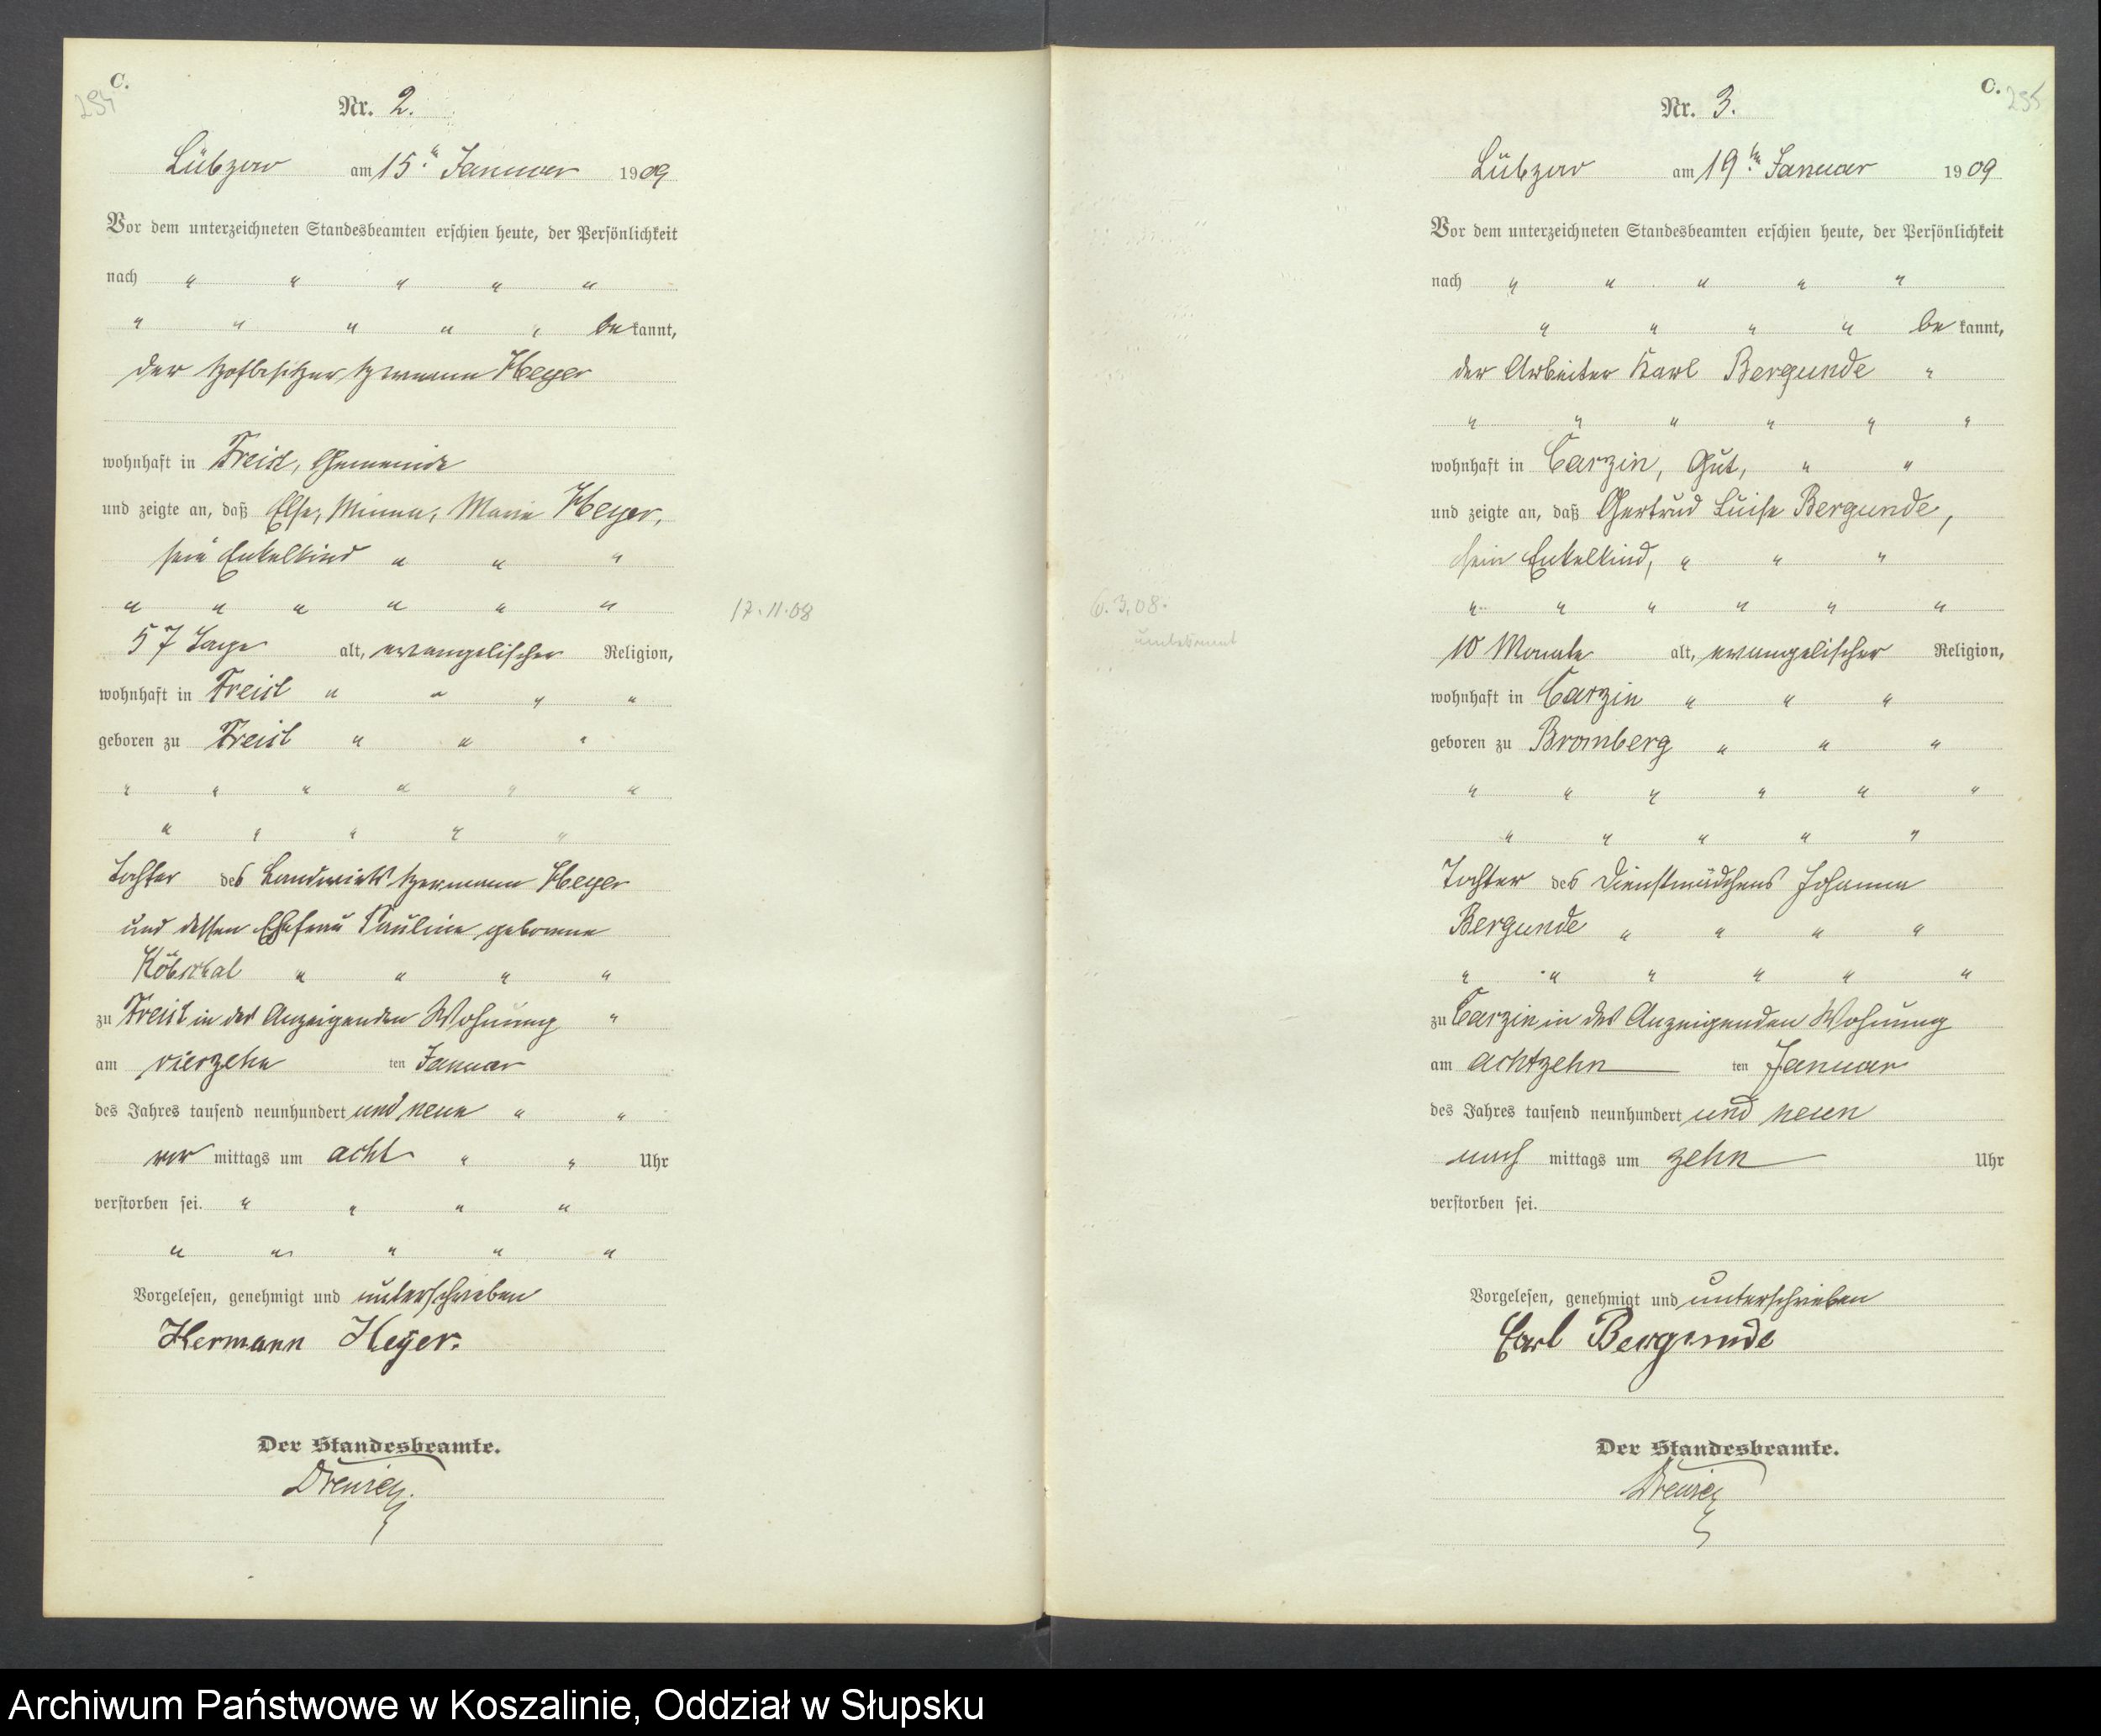 C.
254
Nr. 2.
Lübzow am 15ten Januar 1909
Vor dem unterzeichneten Standesbeamten erschien heute, der Persönlichkeit
nach " " " " "
" " " " " bekannt,
der Hofbesitzer Hermann Heyer
wohnhaft in Freist, Gemeinde
und zeigte an, daß Else, Minna, Marie Heyer,
sein Enkelkind " " "
" " " " " "
17.11.08
57 Tage alt, evangelischer Religion,
wohnhaft in Freist " " " "
geboren zu Freist " " "
" " " " " "
" " " " "
Tochter des Landwirts Hermann Heyer
und dessen Ehefrau Pauline geborene
" " " "
zu Freist in des Anzeigenden Wohnung "
am vierzehn ten Januar
des Jahres tausend neunhundert und neun " "
vor mittags um acht " " Uhr
verstorben sei. " " " "
" " " " "
Vorgelesen, genehmigt und unterschrieben
Hermann Heyer.
Der Standesbeamte.
C.
255
Nr. 3.
Lübzow am 19ten Januar 1909
Vor dem unterzeichneten Standesbeamten erschien heute, der Persönlichkeit
nach " " " " "
" " " " bekannt,
der Arbeiter Karl Bergunde "
" " " " " "
wohnhaft in Carzin, Gut, " "
und zeigte an, daß Gertrud Luise Bergunde,
sein Enkelkind, " " "
" " " " " "
6.3.08.
unbekannt
10 Monate alt, evangelischer Religion,
wohnhaft in Carzin " " "
geboren zu Bromberg " " "
" " " " " "
" " " " "
Tochter des Dienstmädchens Johanna
Bergunde " " " "
" " " " " "
zu Carzin in des Anzeigenden Wohnung
am achtzehn ten Januar
des Jahres tausend neunhundert und neun
nach mittags um zehn Uhr
verstorben sei.
Vorgelesen, genehmigt und unterschrieben
Carl Bergunde
Der Standesbeamte.
Archiwum Państwowe w Koszalinie, Oddział w Słupsku